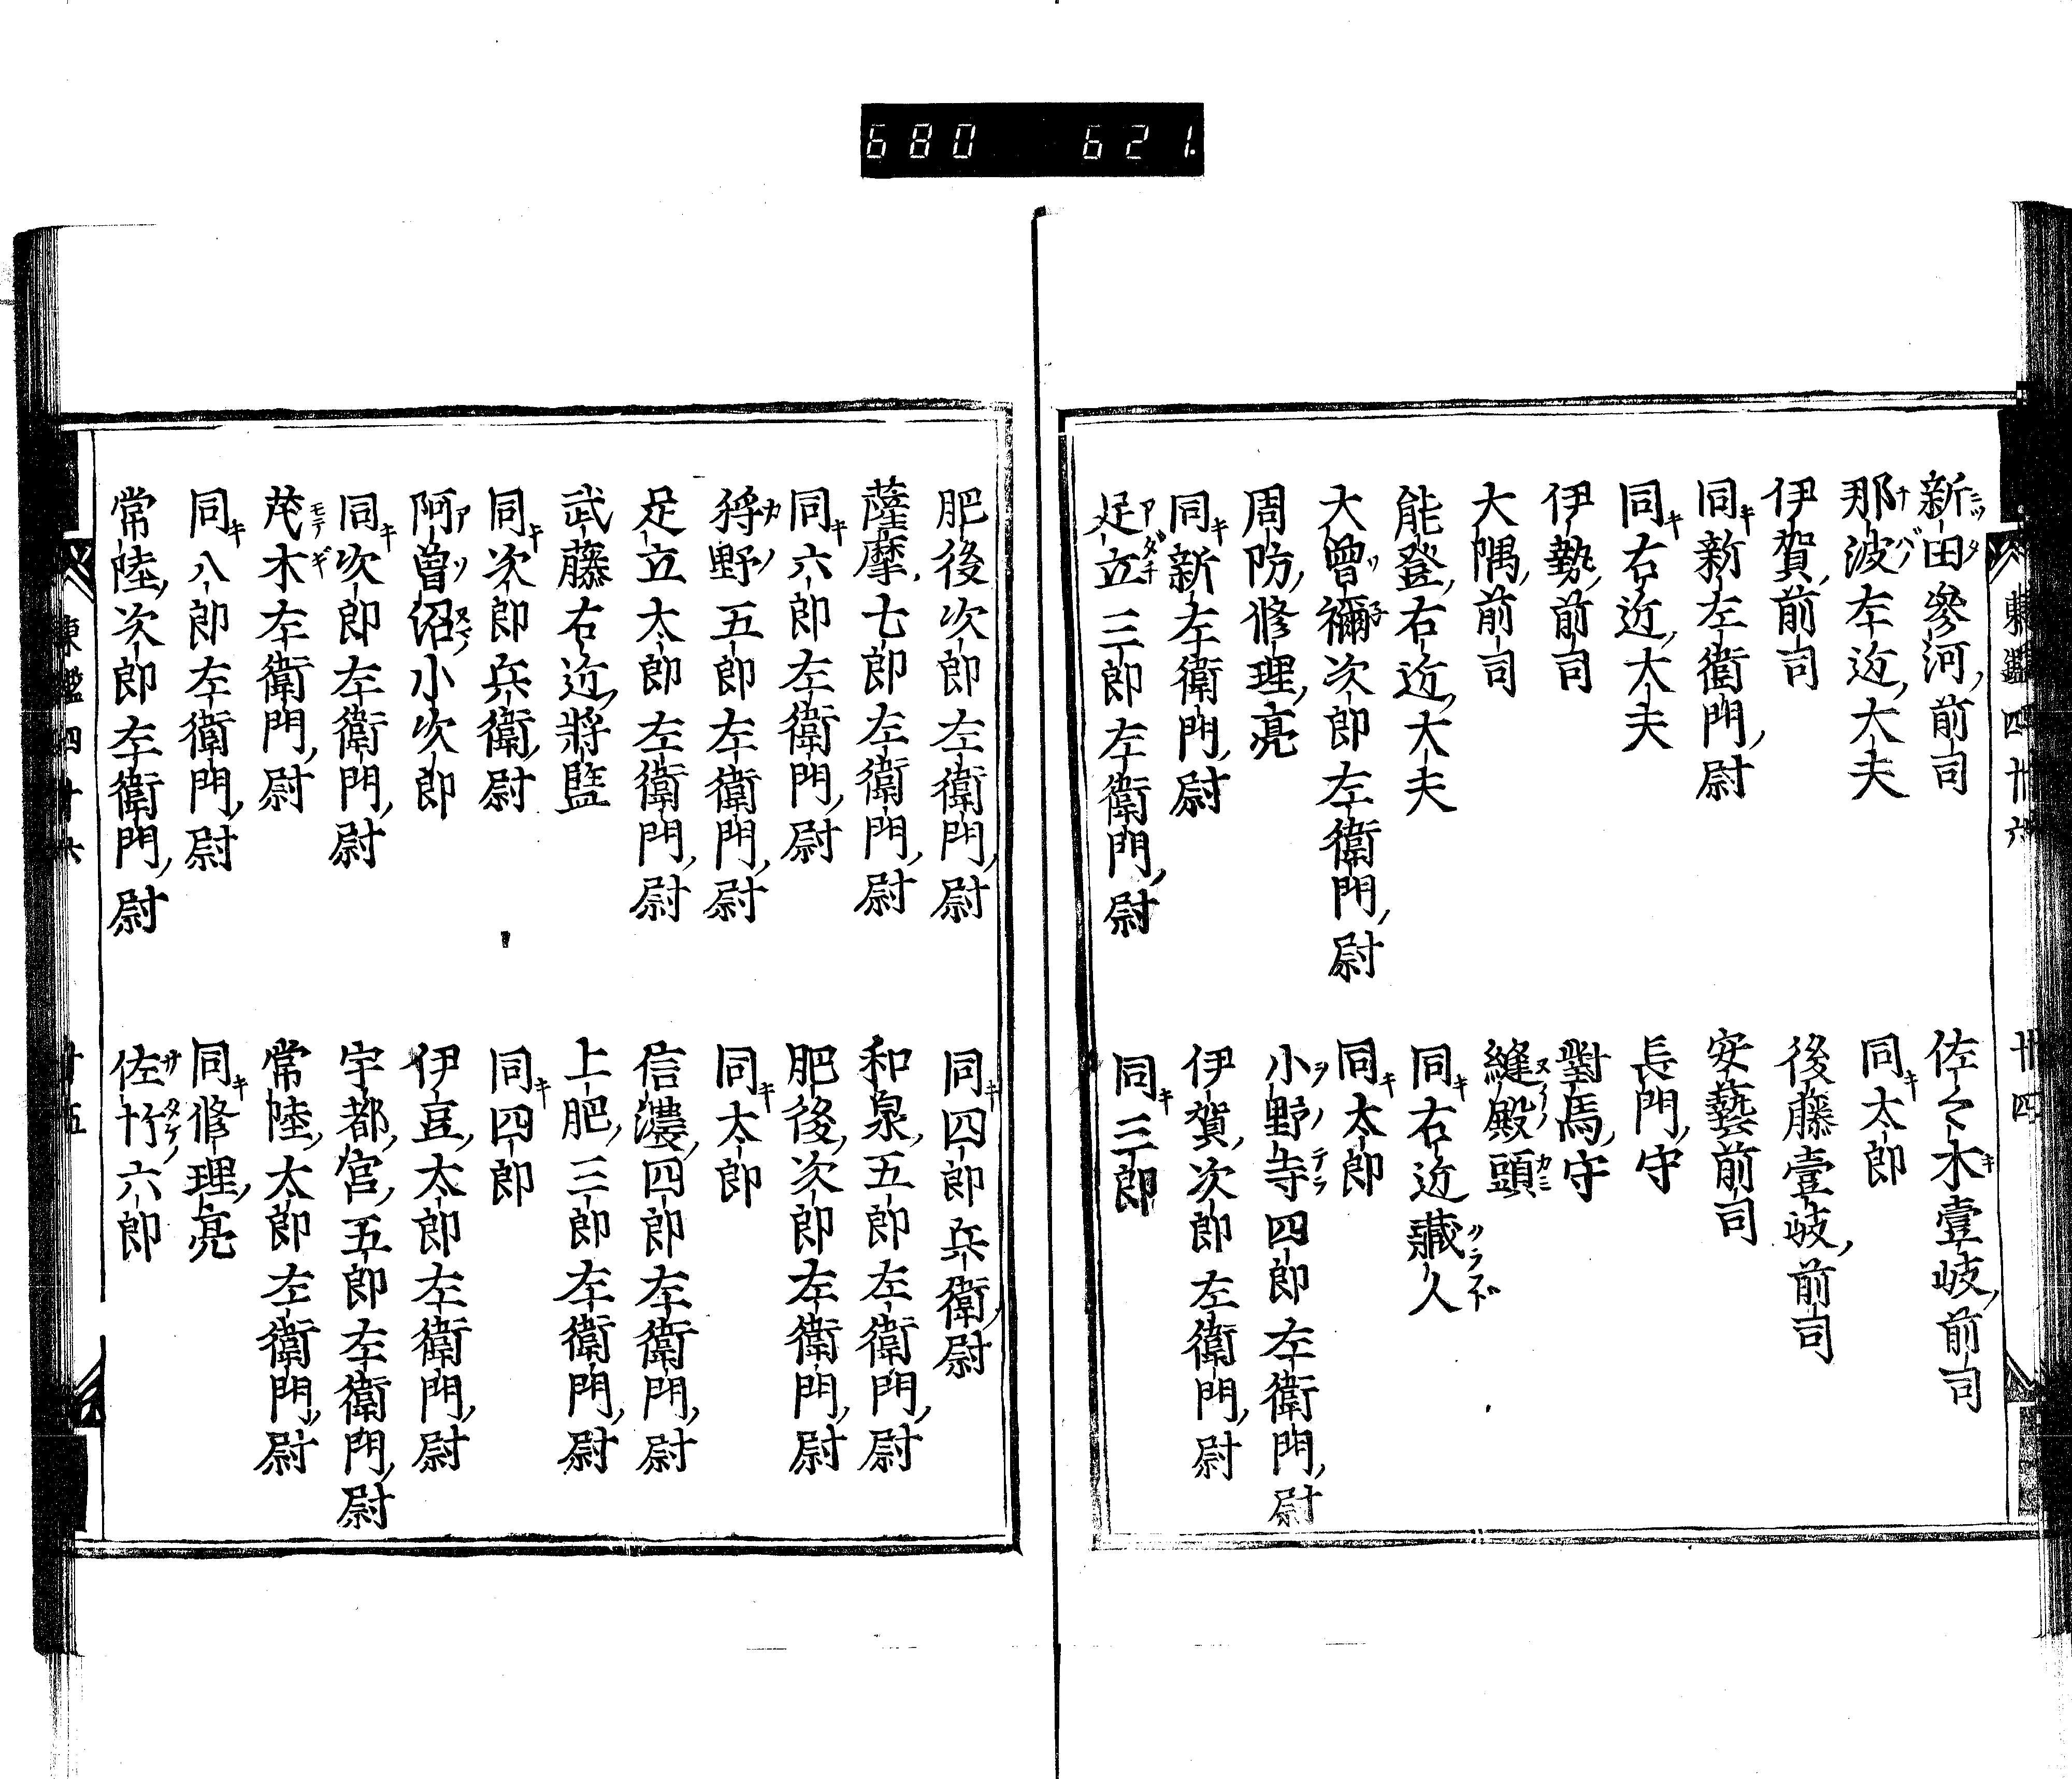 680 621.
東鑑四十六 廿四
新田參河前司 佐々木壹岐前司
那波左近大夫 同太郎
伊賀前司 後藤壹岐前司
同新左衞門尉 安藝前司
同右近大夫 長門守
伊勢前司 對馬守
大隅前司 縫殿頭
能登右近大夫 同右近藏人
大曾禰次郎左衞門尉 同太郎
周防修理亮 小野寺四郎左衞門尉
同新左衞門尉 伊賀次郎左衞門尉
足立三郎左衞門尉 同三郎
肥後次郎左衞門尉 同四郎兵衞尉
薩摩七郎左衞門尉 和泉五郎左衞門尉
同六郎左衞門尉 肥後次郎左衞門尉
狩野五郎左衞門尉 同太郎
足立太郎左衞門尉 信濃四郎左衞門尉
武藤右近將監 上肥三郎左衞門尉
同次郎兵衞尉 同四郎
阿曾沼小次郎 伊豆太郎左衞門尉
同次郎左衞門尉 宇都宮五郎左衞門尉
茂木左衞門尉 常陸太郎左衞門尉
同八郎左衞門尉 同修理亮
常陸次郎左衞門尉 佐竹六郎
東鑑四十六 廿五